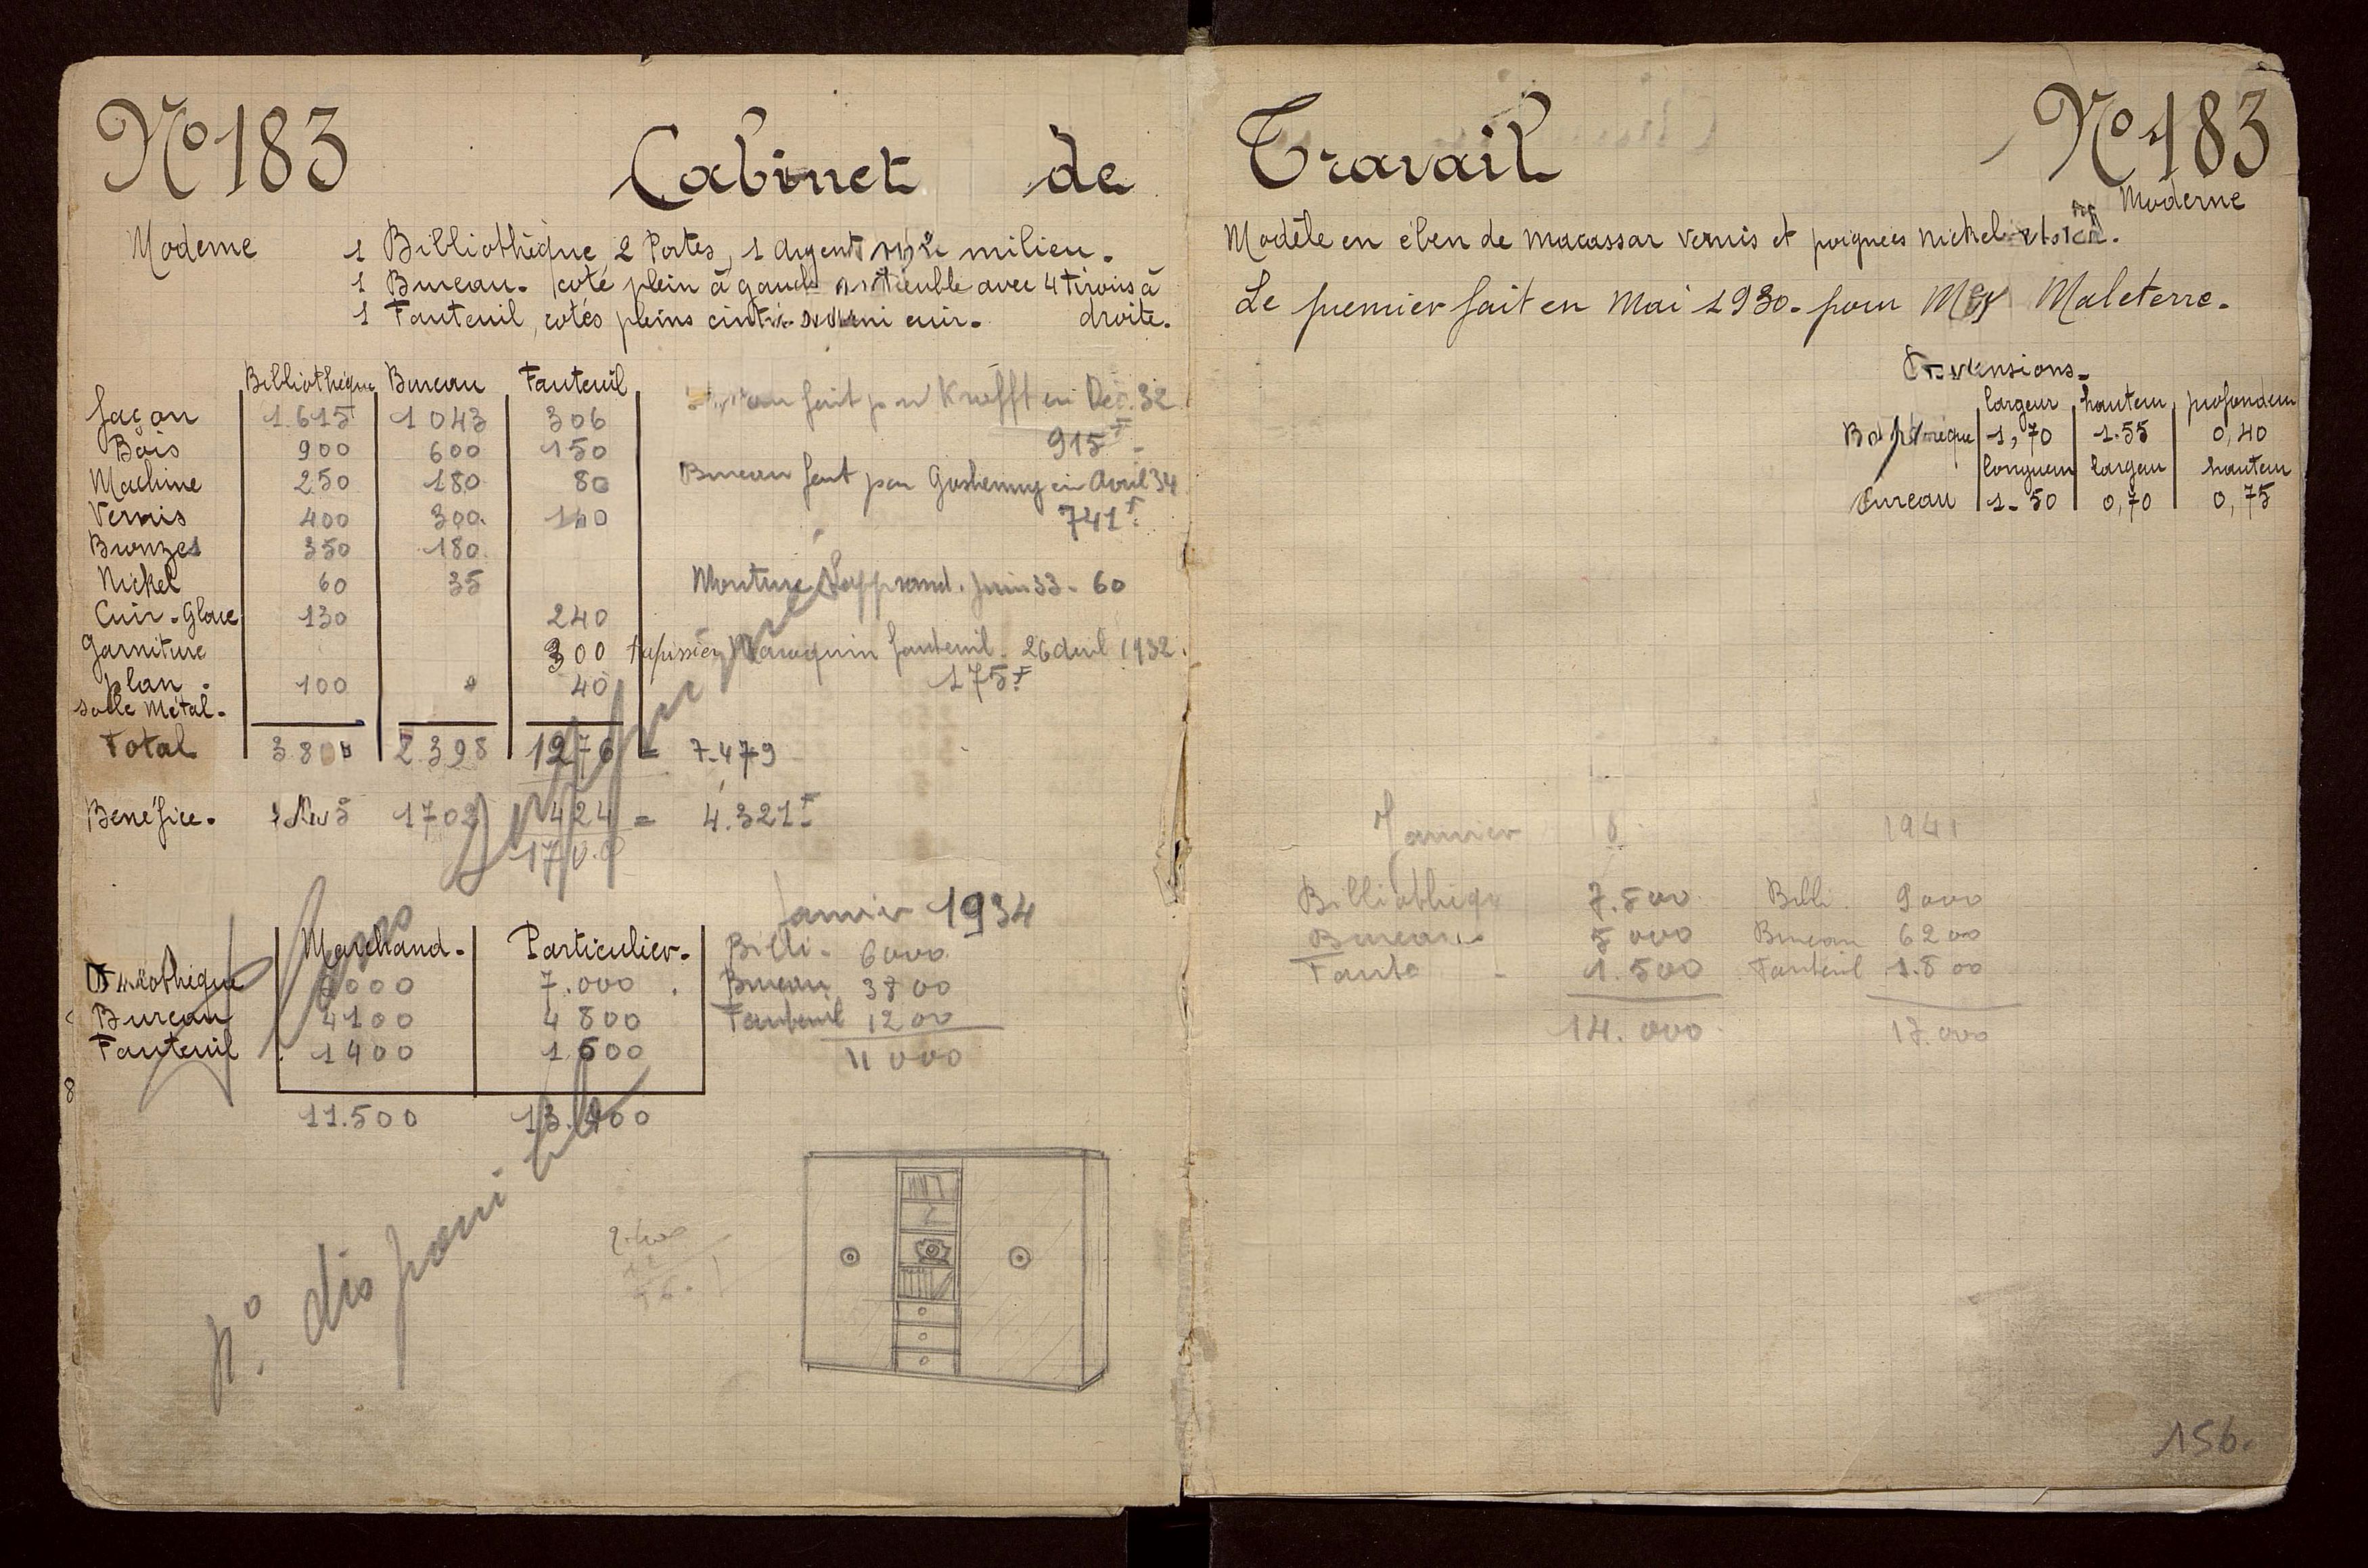 Nº 183 Cabinet de
Moderne
1 Bibliothèque, 2 Portes, 1 argent milieu.
1 Bureau. coté plein à gauche meuble avec 4 tiroirs à
1 Fauteuil, cotés pleins cuir. droite.
Bibliothèque Bureau Fauteuil
façon 1.615 1043 306
Bois 900 600 150
Machine 250 180 80
Vernis 400 300
Bronzes 350 180
Nickel 60 35
Cuir-Glace 130 240
Garniture 300
plan. 100 40
Métal.
Total 2.398 1276 = 7.479
Bénéfice. 1702 424 = 4.321F
fait par Krefft en Dec. 32
915F
Bureau fait par en Avril 34
741F
Monture Juin 33. 60
tapissier fauteuil. 26 1932.
175F
Marchand. Particulier.
7.000
Bureau 4100 4800
Fauteuil 1400 1.600
11.500 13.400
Janvier 1934
Bibli. 6000
Bureau 3800
Fauteuil 1200
11000
nº disponible
8
Travail Nº 183
Moderne
Modèle en ében de macassar vernis et poignées nickel.
Le premier fait en Mai 1930. pour Maleterre.
largeur hauteur profondeur
1,70 1.55 0,40
longueur largeur hauteur
Bureau 1.50 0,70 0,75
Janvier 1941
7.500 Bibli. 9000
Bureau 5000 Bureau 6200
1.500 Fauteuil 1.800
14.000 17.000
156.